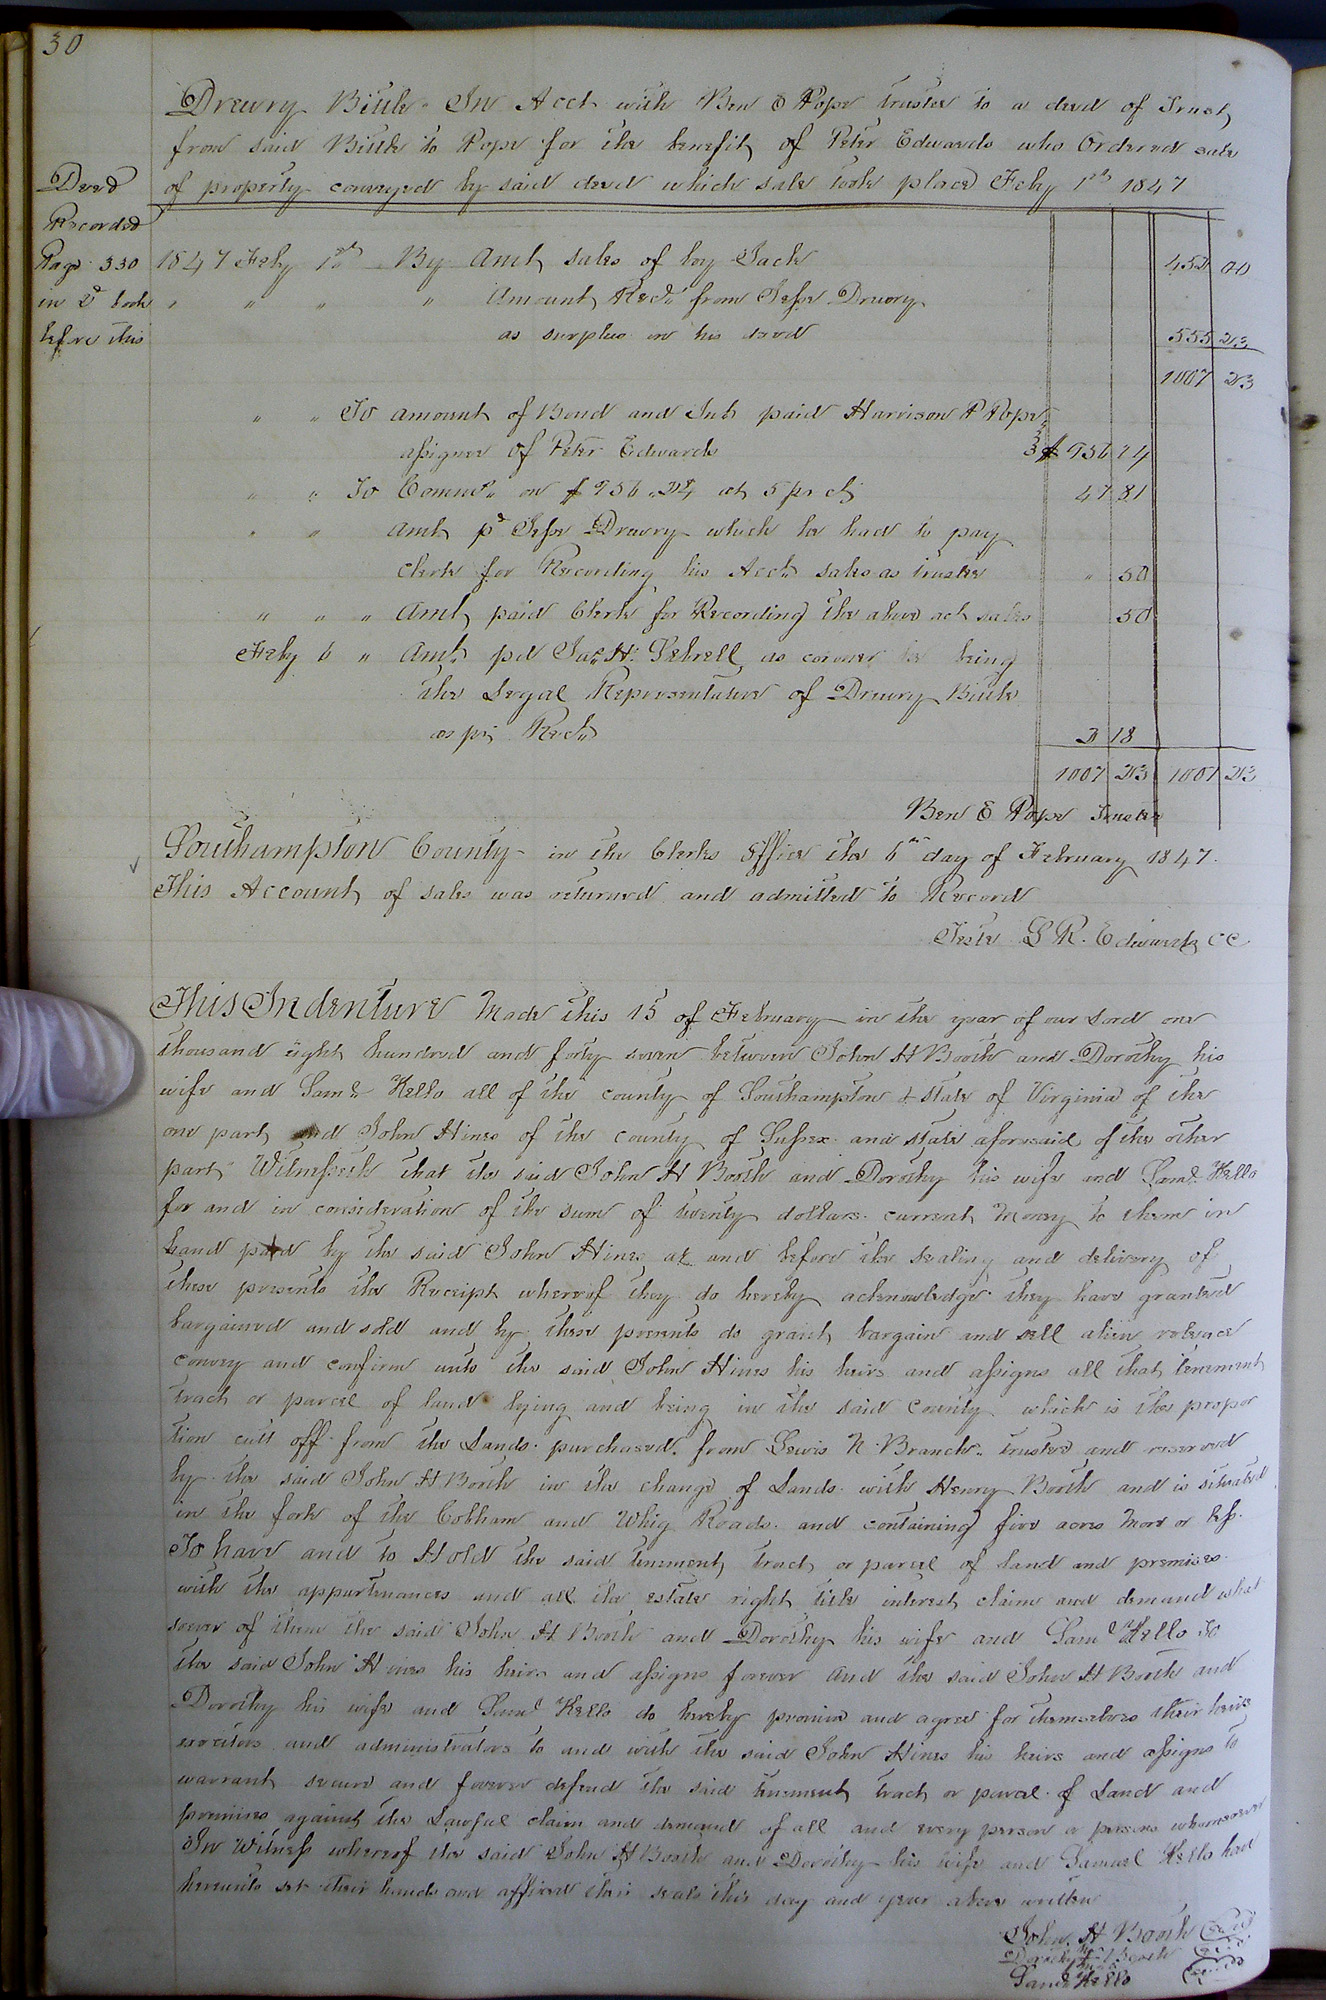 30
Drewry Bittle In Acct with Ben E Pope trustee to a deed of Trust
from said Bittle to Pope for the benefit of Peter Edwards who Ordered sale
of property conveyed by said deed which sale took place Feby 1st 1847
Deed
Recorded
Page 330
in 2d book
before this
1847 Feby 1st By Amt sales of boy Jack 452 00
" " " " Amount Recd from Jesse Drewry
as surplus in his deed 555 23
1007 23
" " To amount of Bond and Int paid Harrison P Pope
assignee of Peter Edwards $ 956 24
" " To Comms on $ 956.24 at 5 pr ct 47 81
" " Amt pd Jesse Drewry which he had to pay
Clerk for Recording his Acct sales as trustee " 50
" " " Amt paid Clerk for Recording the above act sales 50
Feby 6 " Amt pd Jas H. Sebrell as coroner he being
the Legal Representative of Drewry Bittle
as pr Rect 2 18
1007 23 1007 23
Ben E Pope Trustee
Southampton County in the Clerks Office the 6th day of February 1847.
This Account of sales was returned and admitted to Record
Teste L R. Edwards CC
This Indenture Made this 15 of February in the year of our Lord one
thousand eight hundred and forty seven between John H Booth and Dorothy his
wife and Saml Kello all of the county of Southampton & state of Virginia of the
one part and John Hines of the county of Sussex and state aforesaid of the other
part Witnesseth that the said John H Booth and Dorothy his wife and Saml Kello
for and in consideration of the sum of twenty dollars current Money to them in
hand paid by the said John Hines at and before the sealing and delivery of
these presents the Receipt whereof they do hereby acknowledge they have granted
bargained and sold and by these presents do grant bargain and sell alien release
convey and confirm unto the said John Hines his heirs and assigns all that tenement
tract or parcel of land lying and being in the said County which is the propor
tion cutt off from the Lands purchased from Lewis N Branch trustee and reserved
by the said John H Booth in the change of Lands with Henry Booth and is situated
in the fork of the Cobham and Whig Roads and containing five acres More or less.
To have and to Hold the said tenement tract or parcel of land and premises
with the appurtenances and all the estate right title interest claim and demand what
soever of them the said John H Booth and Dorothy his wife and Saml Kello To
the said John Hines his heirs and assigns forever And the said John H Booth and
Dorothy his wife and Saml Kello do hereby promise and agree for themselves their heirs
executors and administrators to and with the said John Hines his heirs and assigns to
warrant secure and forever defend the said tenement tract or parcel of Land and
premises against the Lawful claim and demand of all and every person or persons whomsoever
In Witness whereof the said John H Booth and Dorothy his wife and Samuel Kello had
hereunto set their hands and affixed their seals this day and year above written
John. H Booth (Seal)
Dorothy Booth (Seal)
Saml Kello (Seal)